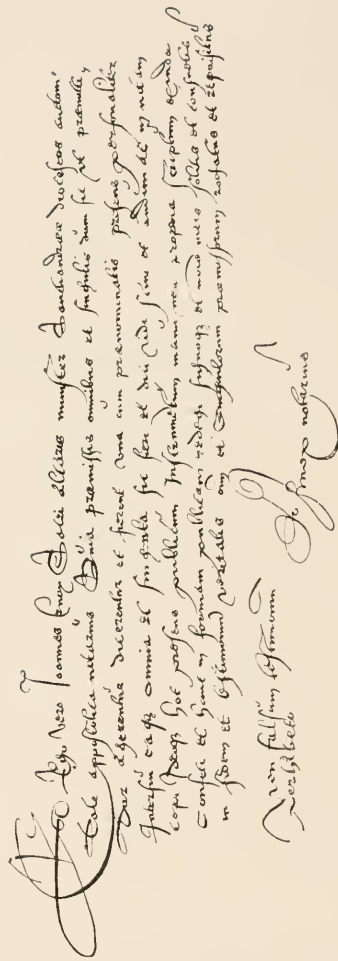 Et Ego Vero Joannes Knox sacri altaris minister Sanctiandreæ diocesos auctori
tate appostolica notarius Quia præmissis omnibus et singulis dum sic vt præmittitur
agerentur dicerentur et fierent vna cum prænominatis præsens personaliter
Interfui eaqȝ omnia et singula sic fieri et dici vidi sciui et audiui ac in notam
cepi Ideoqȝ hoc presens publicum Instrumentum manu mea propria scriptum exinde
confeci et hanc in formam publicam redegi signoqȝ et meis solitis et consuetis
in fidem et testimonium veritatis et singulorum præmissorum rogatus et requisitus
Jo Knox notarius
Non falsum testimonium
perhibeto